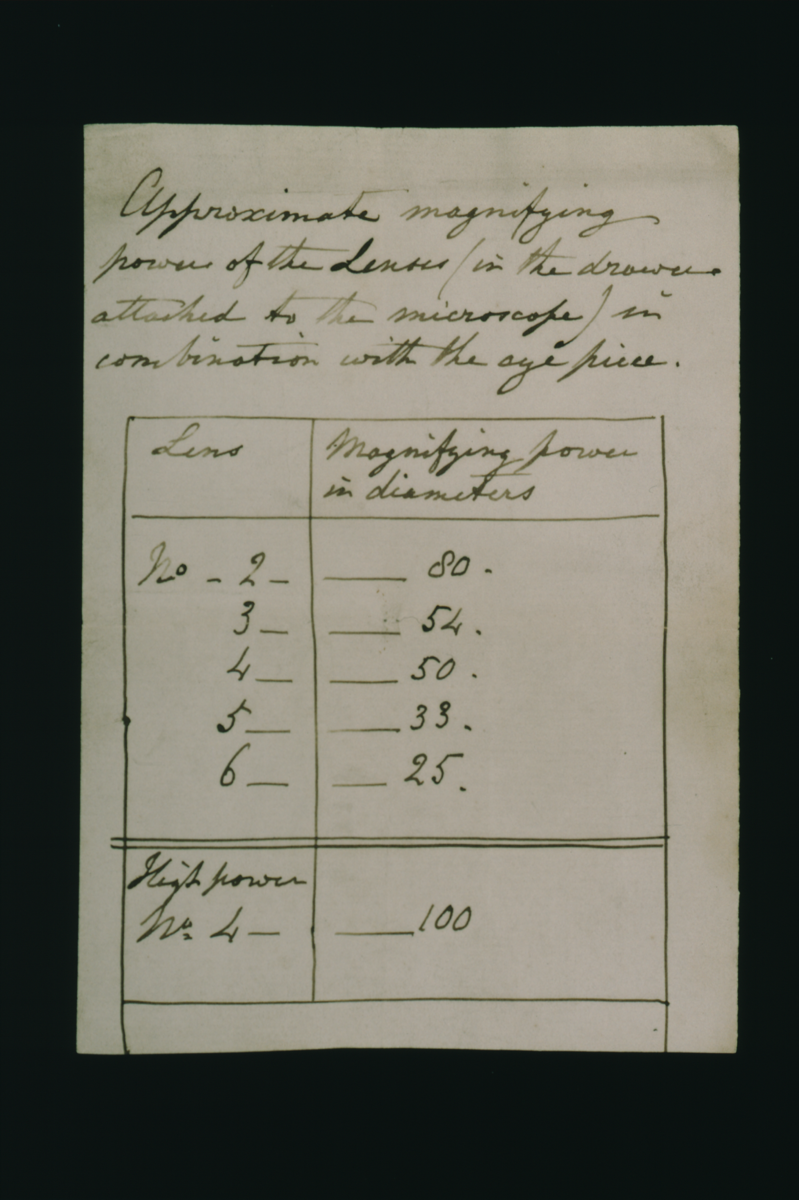 Approximate magnifying
power of the Lenses (in the drawer
attached to the microscope) in
combination with the eye piece.
Lens Magnifying power
in diameters
No - 2 - — 80.
3 — — 54.
4 — — 50.
5 — — 33.
6 — — 25.
High power
No. 4 — — 100